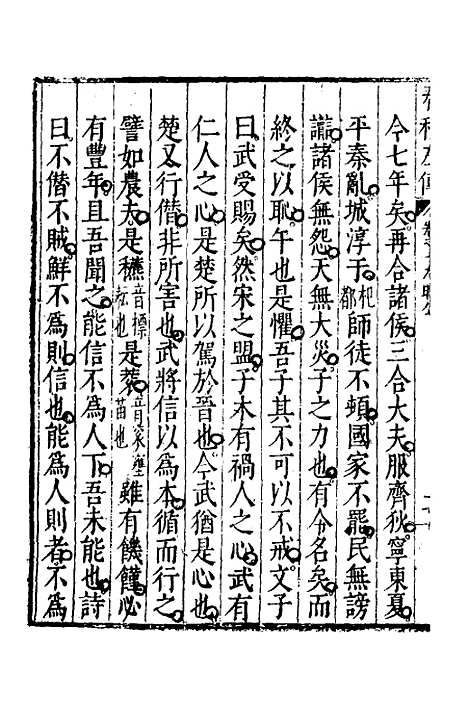 今七年矣再合諸侯三合大夫服齊狄寧東夏
平秦亂城淳于杞都師徒不頓國家不罷民無謗
讟諸侯無怨天無大災子之力也有令名矣而
終之以恥午也是懼吾子其不可以不戒文子
曰武受賜矣然宋之盟子木有禍人之心武有
仁人之心是楚所以駕於晉也今武猶是心也
楚又行僣非所害也武將信以為本循而行之
譬如農夫是穮音標耘也是蓘音袞壅苗也雖有饑饉必
有豐年且吾聞之能信不為人下吾未能也詩
曰不僣不賊鮮不為則信也能為人則者不為